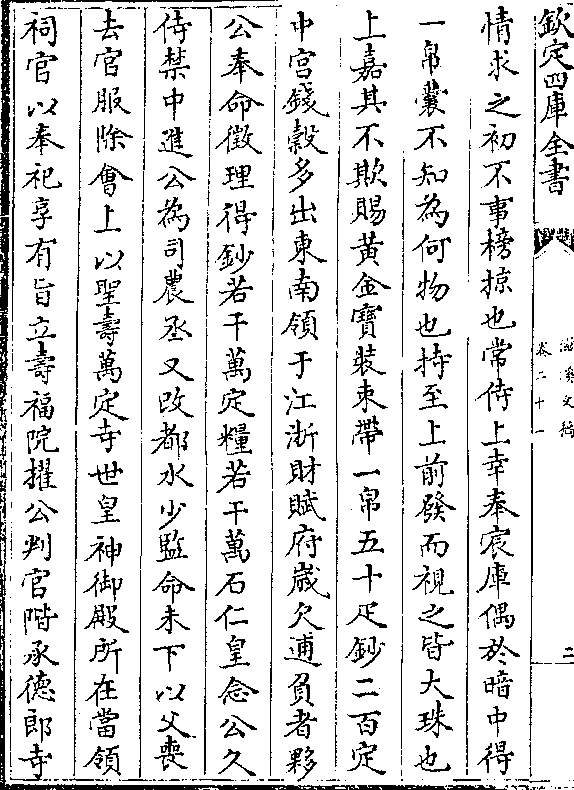 欽定四庫全書
滋溪文稿
卷二十一
二
情求之初不事榜掠也常侍上幸奉宸庫偶於暗中得
一帛囊不知為何物也持至上前發而視之皆大珠也
上嘉其不欺賜黃金寶裝束帶一帛五十疋鈔二百定
中宫錢穀多出東南領于江浙財賦府歲欠逋負者夥
公奉命徵理得鈔若干萬定糧若干萬石仁皇念公久
侍禁中進公為司農丞又改都水少監命未下以父喪
去官服除會上以聖壽萬定寺世皇神御殿所在當領
祠官以奉祀享有旨立壽福院擢公判官階承德郎寺